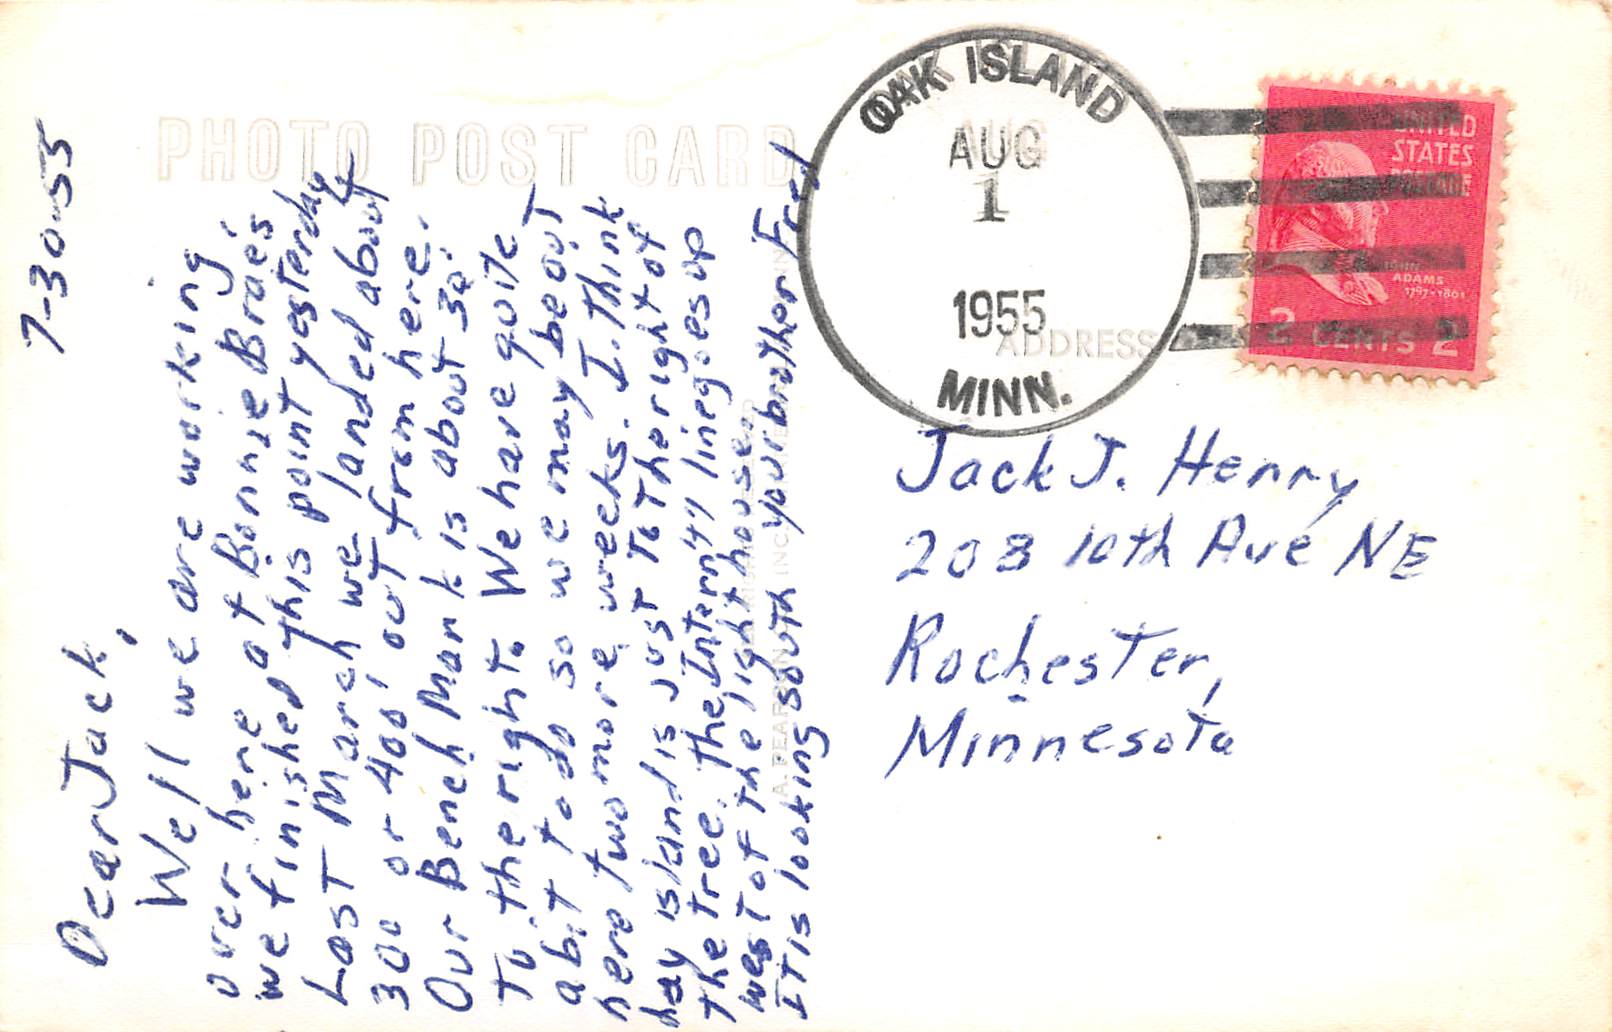 7-30-55
Dear Jack,
Well we are working
over here at Bonnie Brae's.
we finished this point yesterday
Last March we landed about
300 or 400' out from here.
Our Bench Mark is about 30'
To the right. We have quite
a bit to do so we may be out
here two more weeks. I think
hay island is just to the right of
the tree. The Intern'tl line goes up
west of the light house.
It is looking south your brother Fred
PHOTO POST CARD
OAK ISLAND
AUG
1
1955
MINN.
ADDRESS
UNITED
STATES
POSTAGE
JOHN
ADAMS
1797-1801
2 CENTS 2
Jack J. Henry
203 10th Ave NE
Rochester,
Minnesota